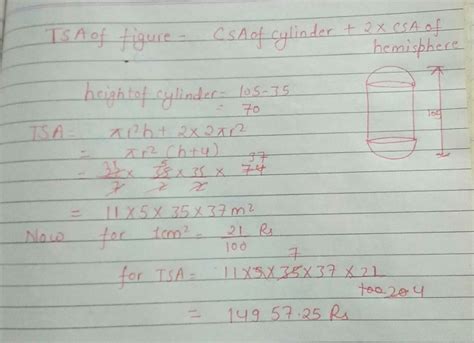 TSA of figure - CSA of cylinder + 2 x CSA of
hemisphere
height of cylinder = 105-35
= 70
TSA = πr²h + 2x2πr²
= πr² (h+4)
= 22/7 x 35/2 x 35/2 x 74 37
= 11x5x35x37m²
Now for 1cm² = 21/100 Rs
7
for TSA = 11x5x35x37x21
100 20 4
= 14957.25 Rs